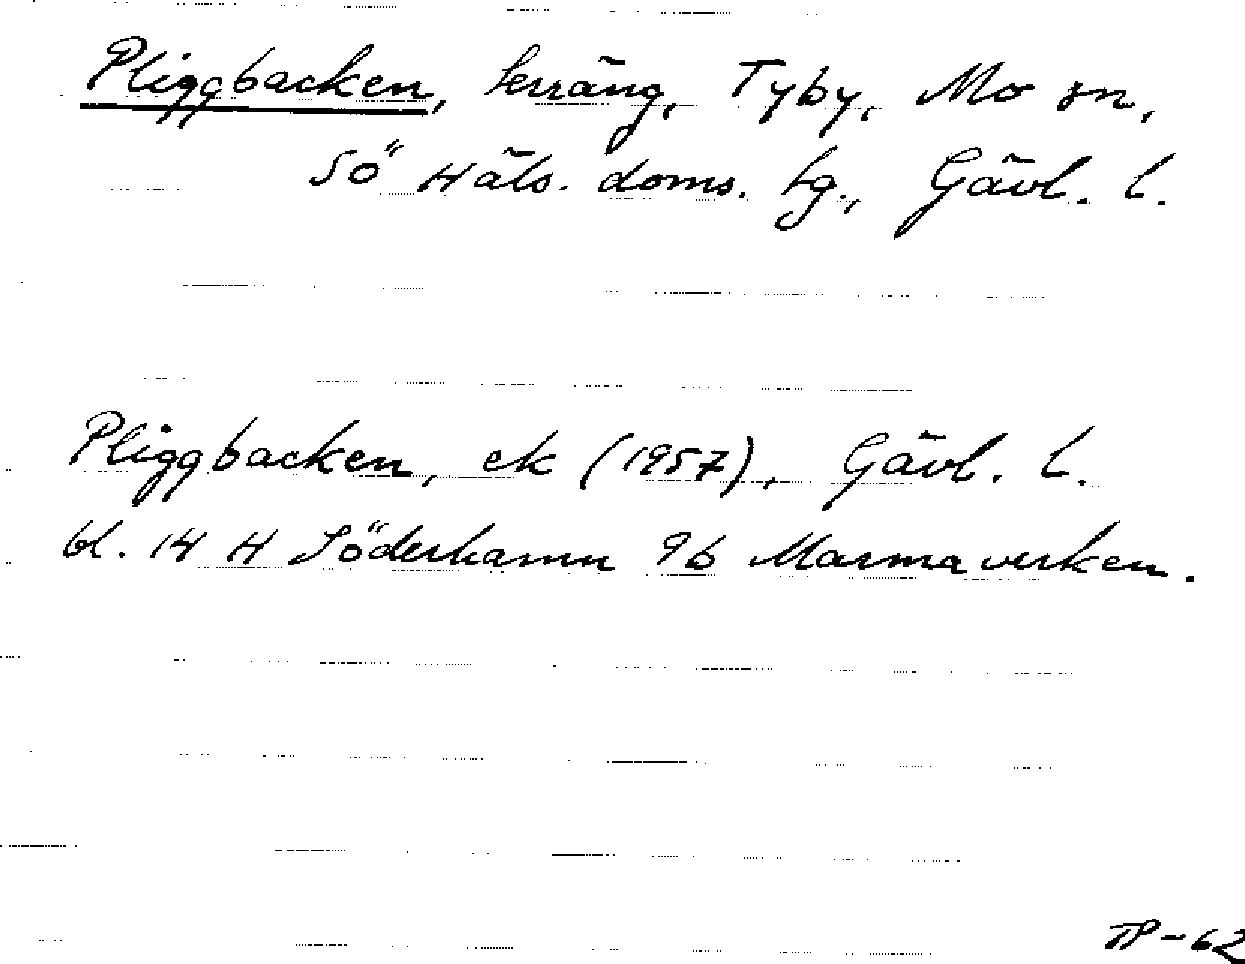 Pliggbacken, terräng, Tyby, Mo sn,
Sö Häls. doms. tg., Gävl. l.
Pliggbacken, ek (1957), Gävl. l.
bl. 14 H Söderhamn 9b Marmaverken.
TP-62